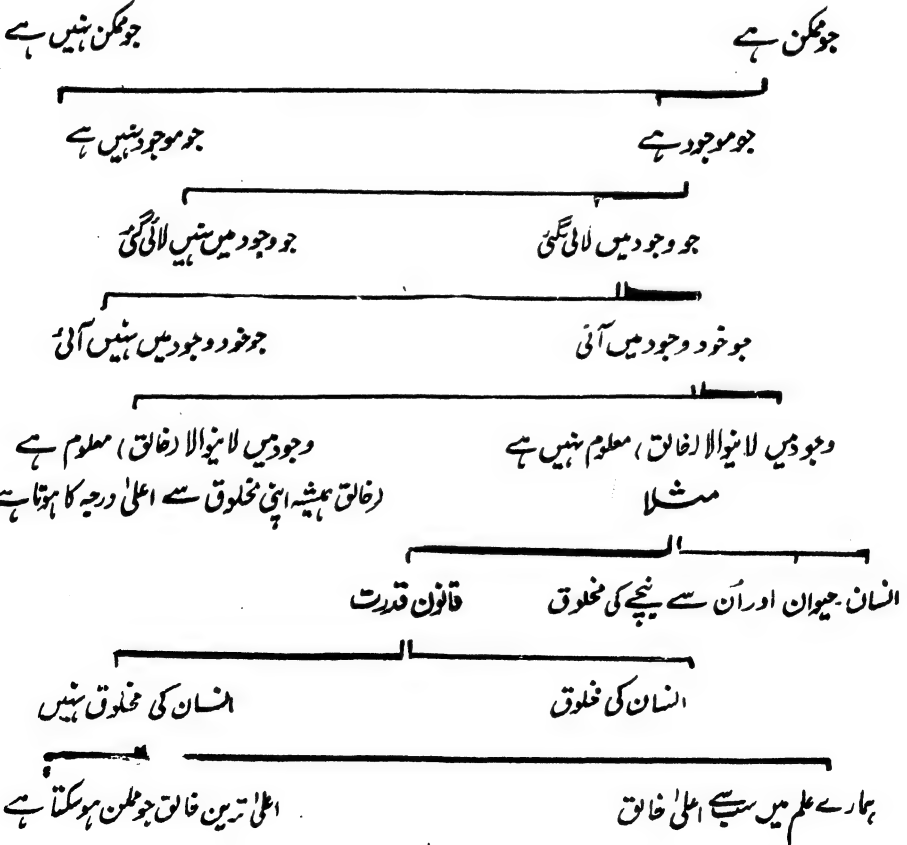 جو ممکن ہے جو ممکن نہیں ہے
جو موجود ہے جو موجود نہیں ہے
جو وجود میں لائی گئی جو وجود میں نہیں لائی گئی
جو خود وجود میں آئی جو خود وجود میں نہیں آئی
وجود میں لانیوالا (خالق) معلوم نہیں ہے وجود میں لانیوالا (خالق) معلوم ہے
مثلا (خالق ہمیشہ اپنی مخلوق سے اعلیٰ درجہ کا ہوتا ہے
انسان۔ حیوان اور اُن سے نیچے کی مخلوق قانون قدرت
انسان کی مخلوق انسان کی مخلوق نہیں
ہمارے علم میں سب سے اعلیٰ خالق اعلیٰ ترین خالق جو ممکن ہو سکتا ہے